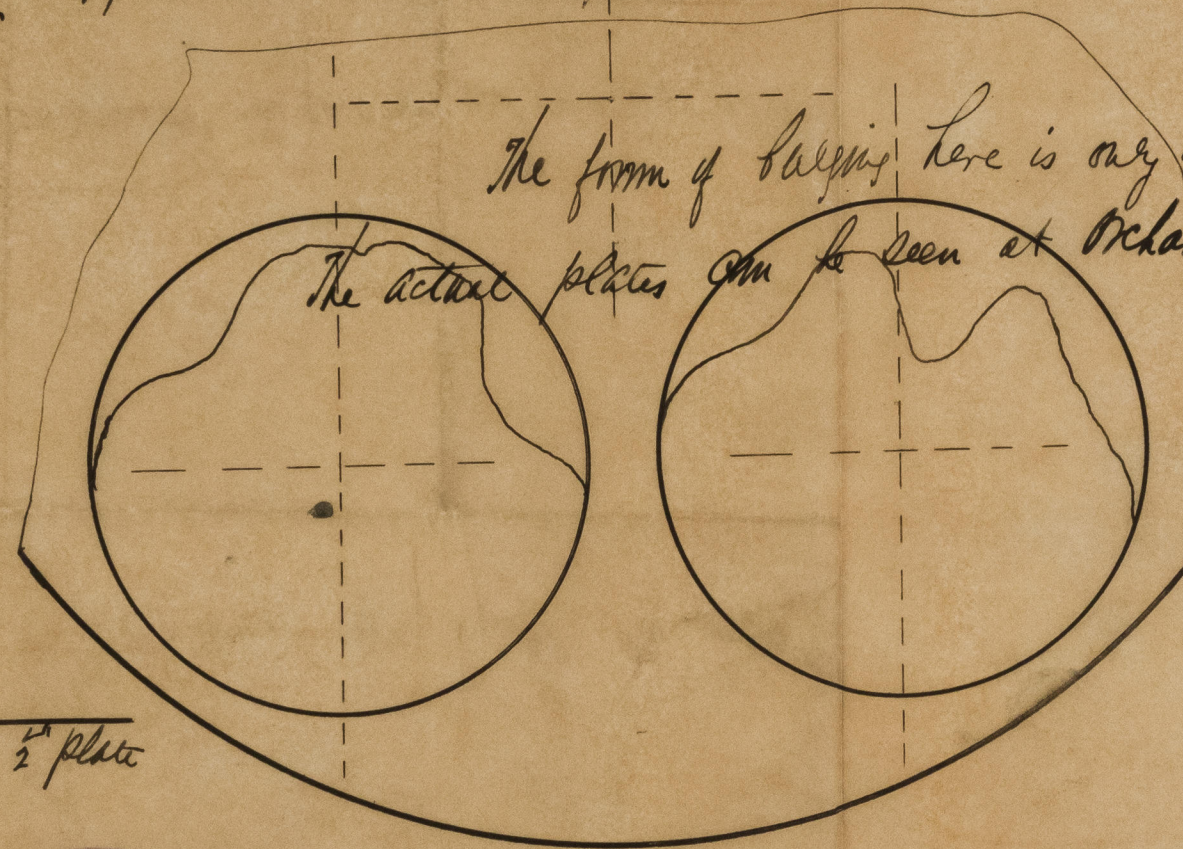 The form of bulging here is only
The actual plates can be seen at Orcha
2" plate